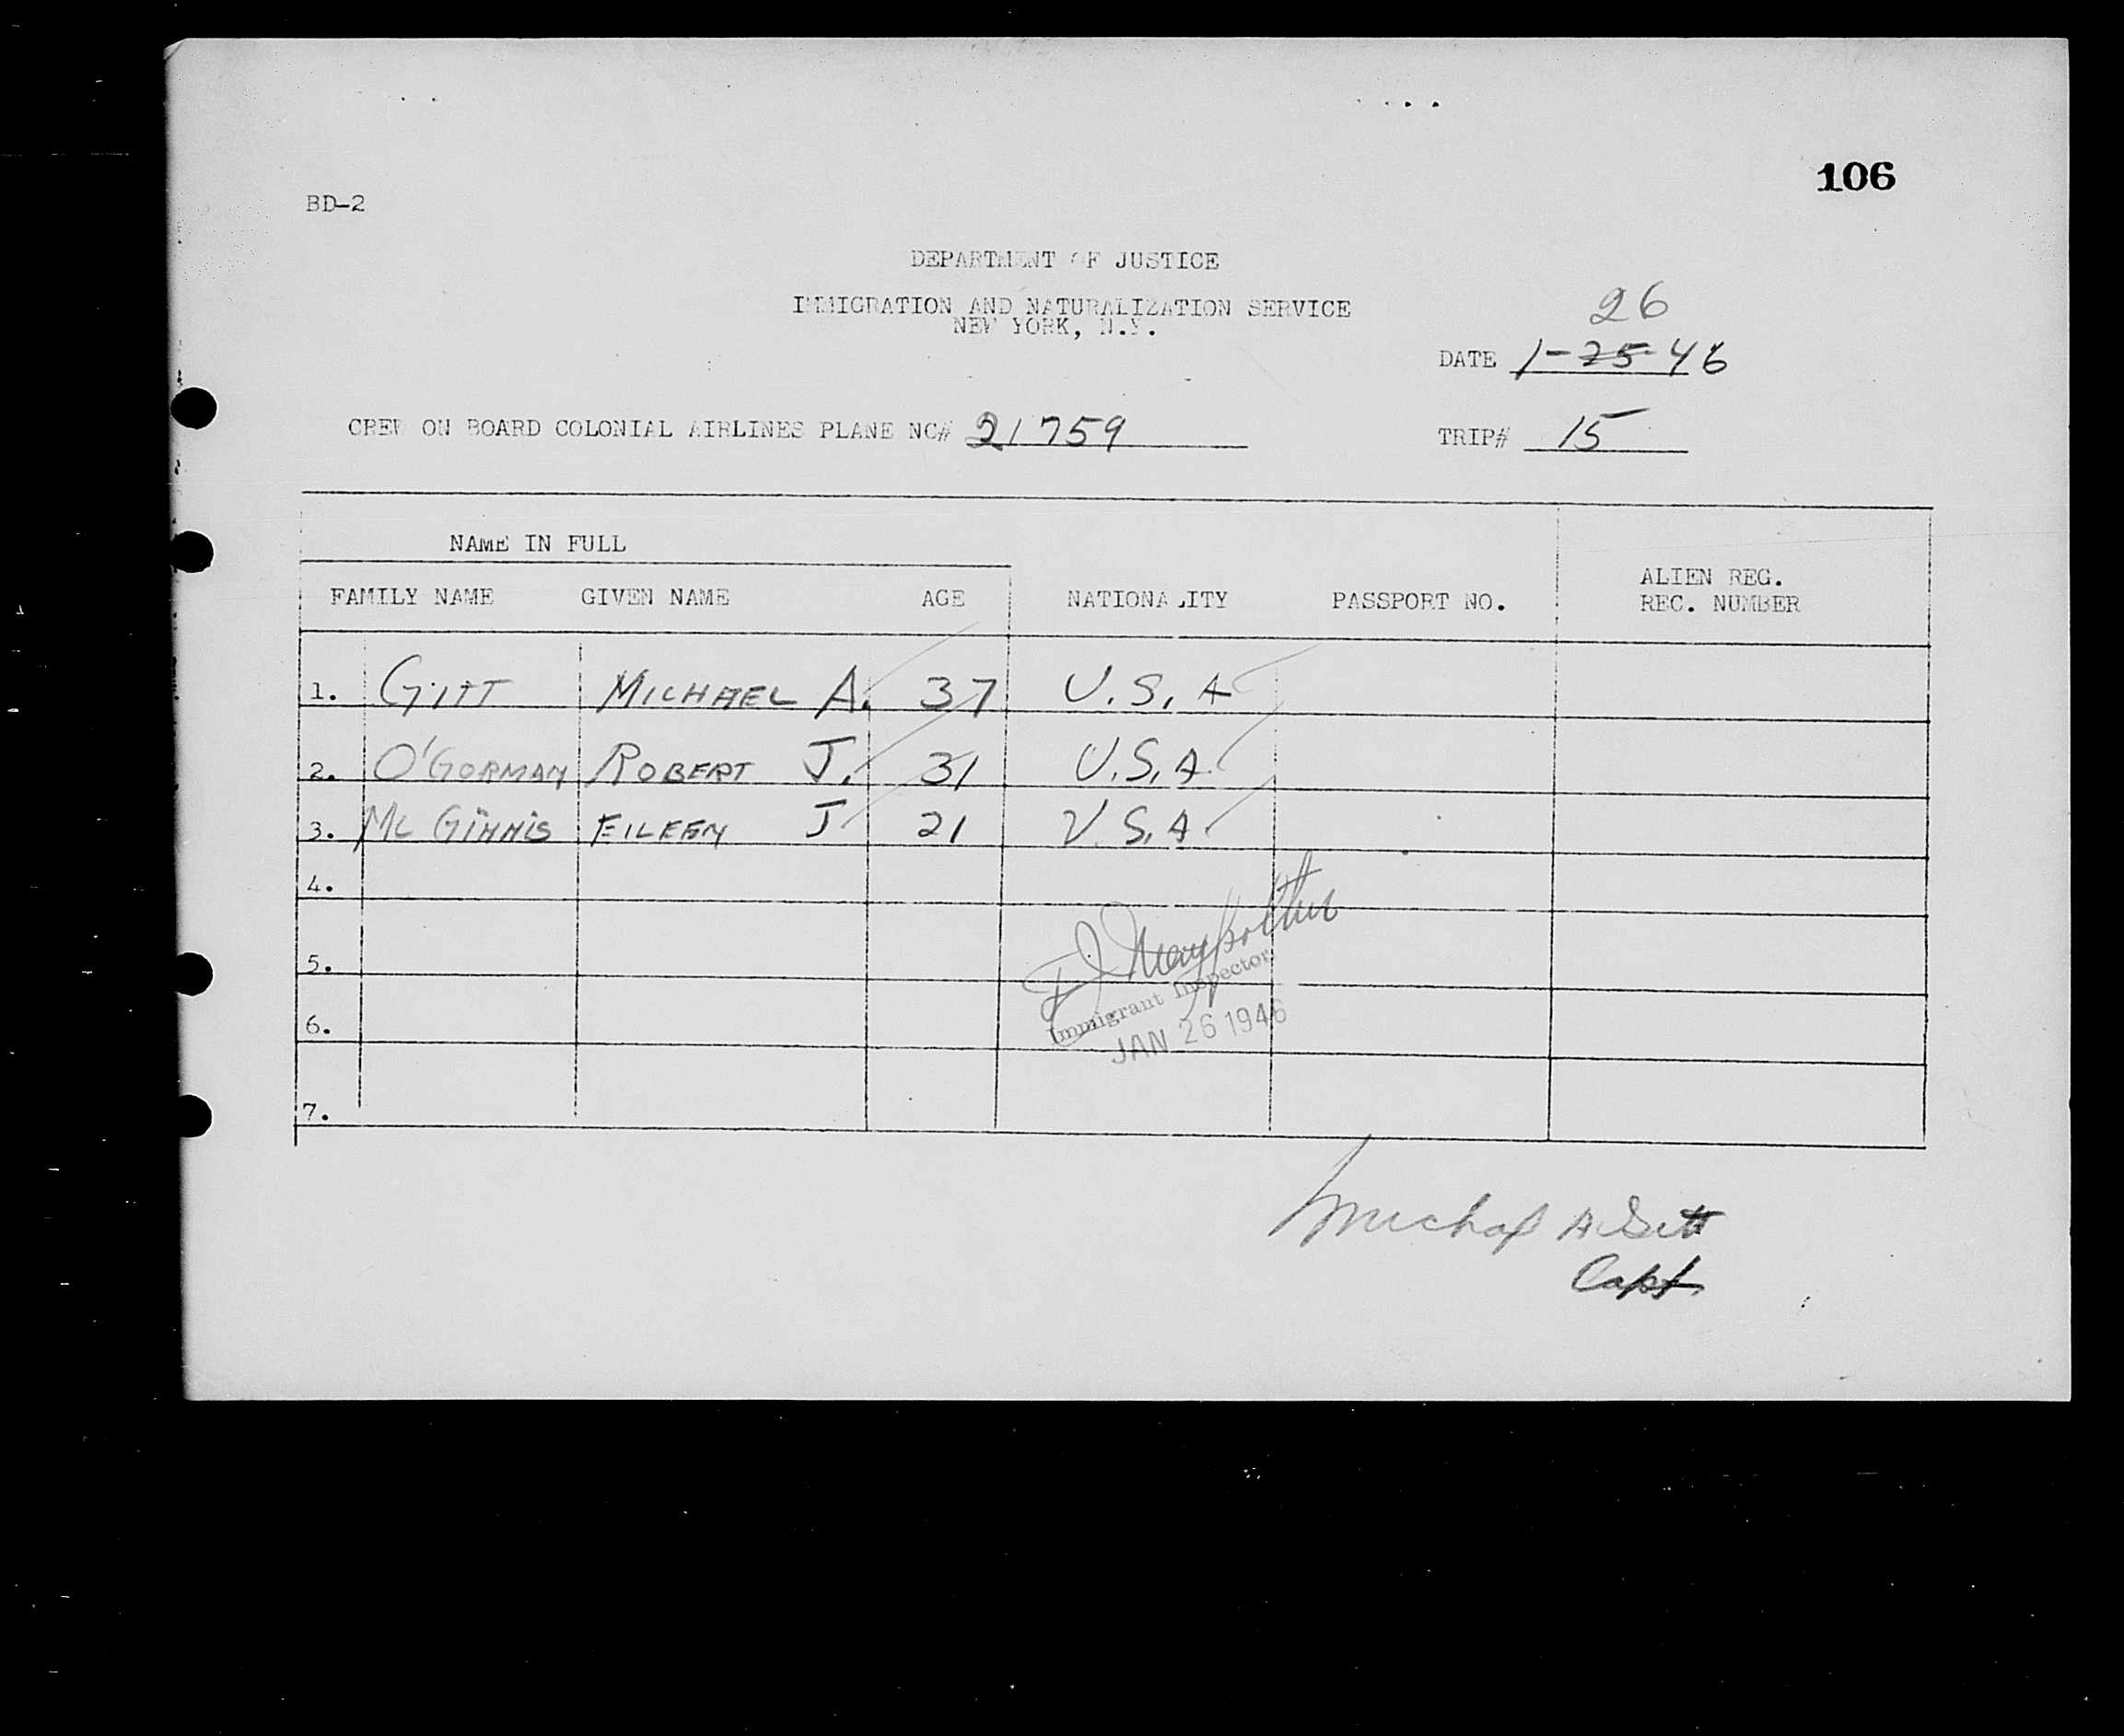 106
BD-2
DEPARTMENT OF JUSTICE
IMMIGRATION AND NATURALIZATION SERVICE
NEW YORK, N.Y.
26
DATE 1-25-46
CREW ON BOARD COLONIAL AIRLINES PLANE NC# 21759
TRIP# 15
NAME IN FULL
FAMILY NAME GIVEN NAME AGE NATIONALITY PASSPORT NO. ALIEN REG. REC. NUMBER
1. GITT MICHAEL A. 37 U.S.A
2. O'GORMAN ROBERT J. 31 U.S.A.
3. Mc GINNIS EILEEN J 21 U.S.A
4.
5.
Immigrant Inspector
6.
JAN 26 1946
7.
Michael A Gitt
Capt.